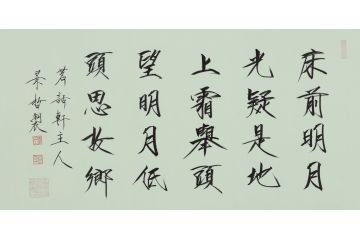 床前明月
光疑是地
上霜舉頭
望明月低
頭思故鄉
茗語軒主人